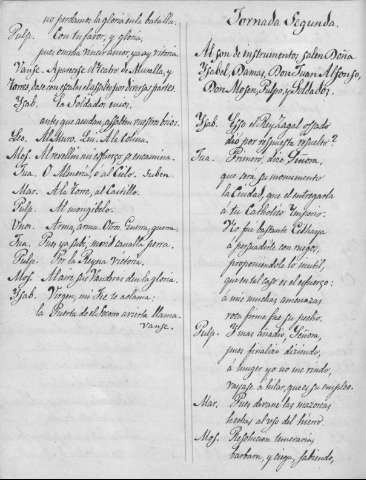 no perdamos la gloria en la batalla.
Pulp. Con tu favor, y gloria,
pues eres la vencer amor, ya ay vitoria
Vanse. Aparecese el teatro de Muralla, y
torres, dase con escalas el asalto por diversas partes.
Ysab. Ea Soldados mios,
antes que acudan, assalten nuestros brios.
Leo. Al Muro. Lui. A la Colina.
Mos. Al revellin mi esfuerzo se encamina.
Jua. O Almena, o al Cielo. suben.
Mar. A la Torre, al Castillo.
Pulp. Al mongibelo.
Unos. Arma, arma. Otros. Guerra, guerra.
Jua. Pues ya subi, morid canalla perra.
Pulp. Por la Reyna victoria.
Mos. Maior, sus Vanderas den la gloria.
Ysab. Virgen, mi Fee te aclama,
la Puerta de el Socorro avierta llama.
Vanse.
Jornada Segunda.
Al son de instrumentos salen Doña
Ysabel, Damas, Don Juan Alfonso,
Don Mosen, Pulpo, y Soldados.
Ysab. Esso el Rey Zagal ossado
dio por respuesta resuelto?
Jua. Primero, dice Señora,
que sera su monumento
la Ciudad, que el entregarla
a tu Catholico Imperio.
No fue bastante Cidhiaya
a persuadirle con ruegos,
proponiendole lo inutil,
que en tal caso es el esfuerzo:
a mis muchas amenazas
roca firme fue su pecho.
Pulp. Y mas añade, Señora,
pues finalizo diziendo,
a muger yo no me rindo,
vayase a hilar, que es su empleo.
Mar. Pues devane las mazorcas
hechas al uso del hierro.
Mos. Resolucion temeraria,
barbara, y ciega, sabiendo,